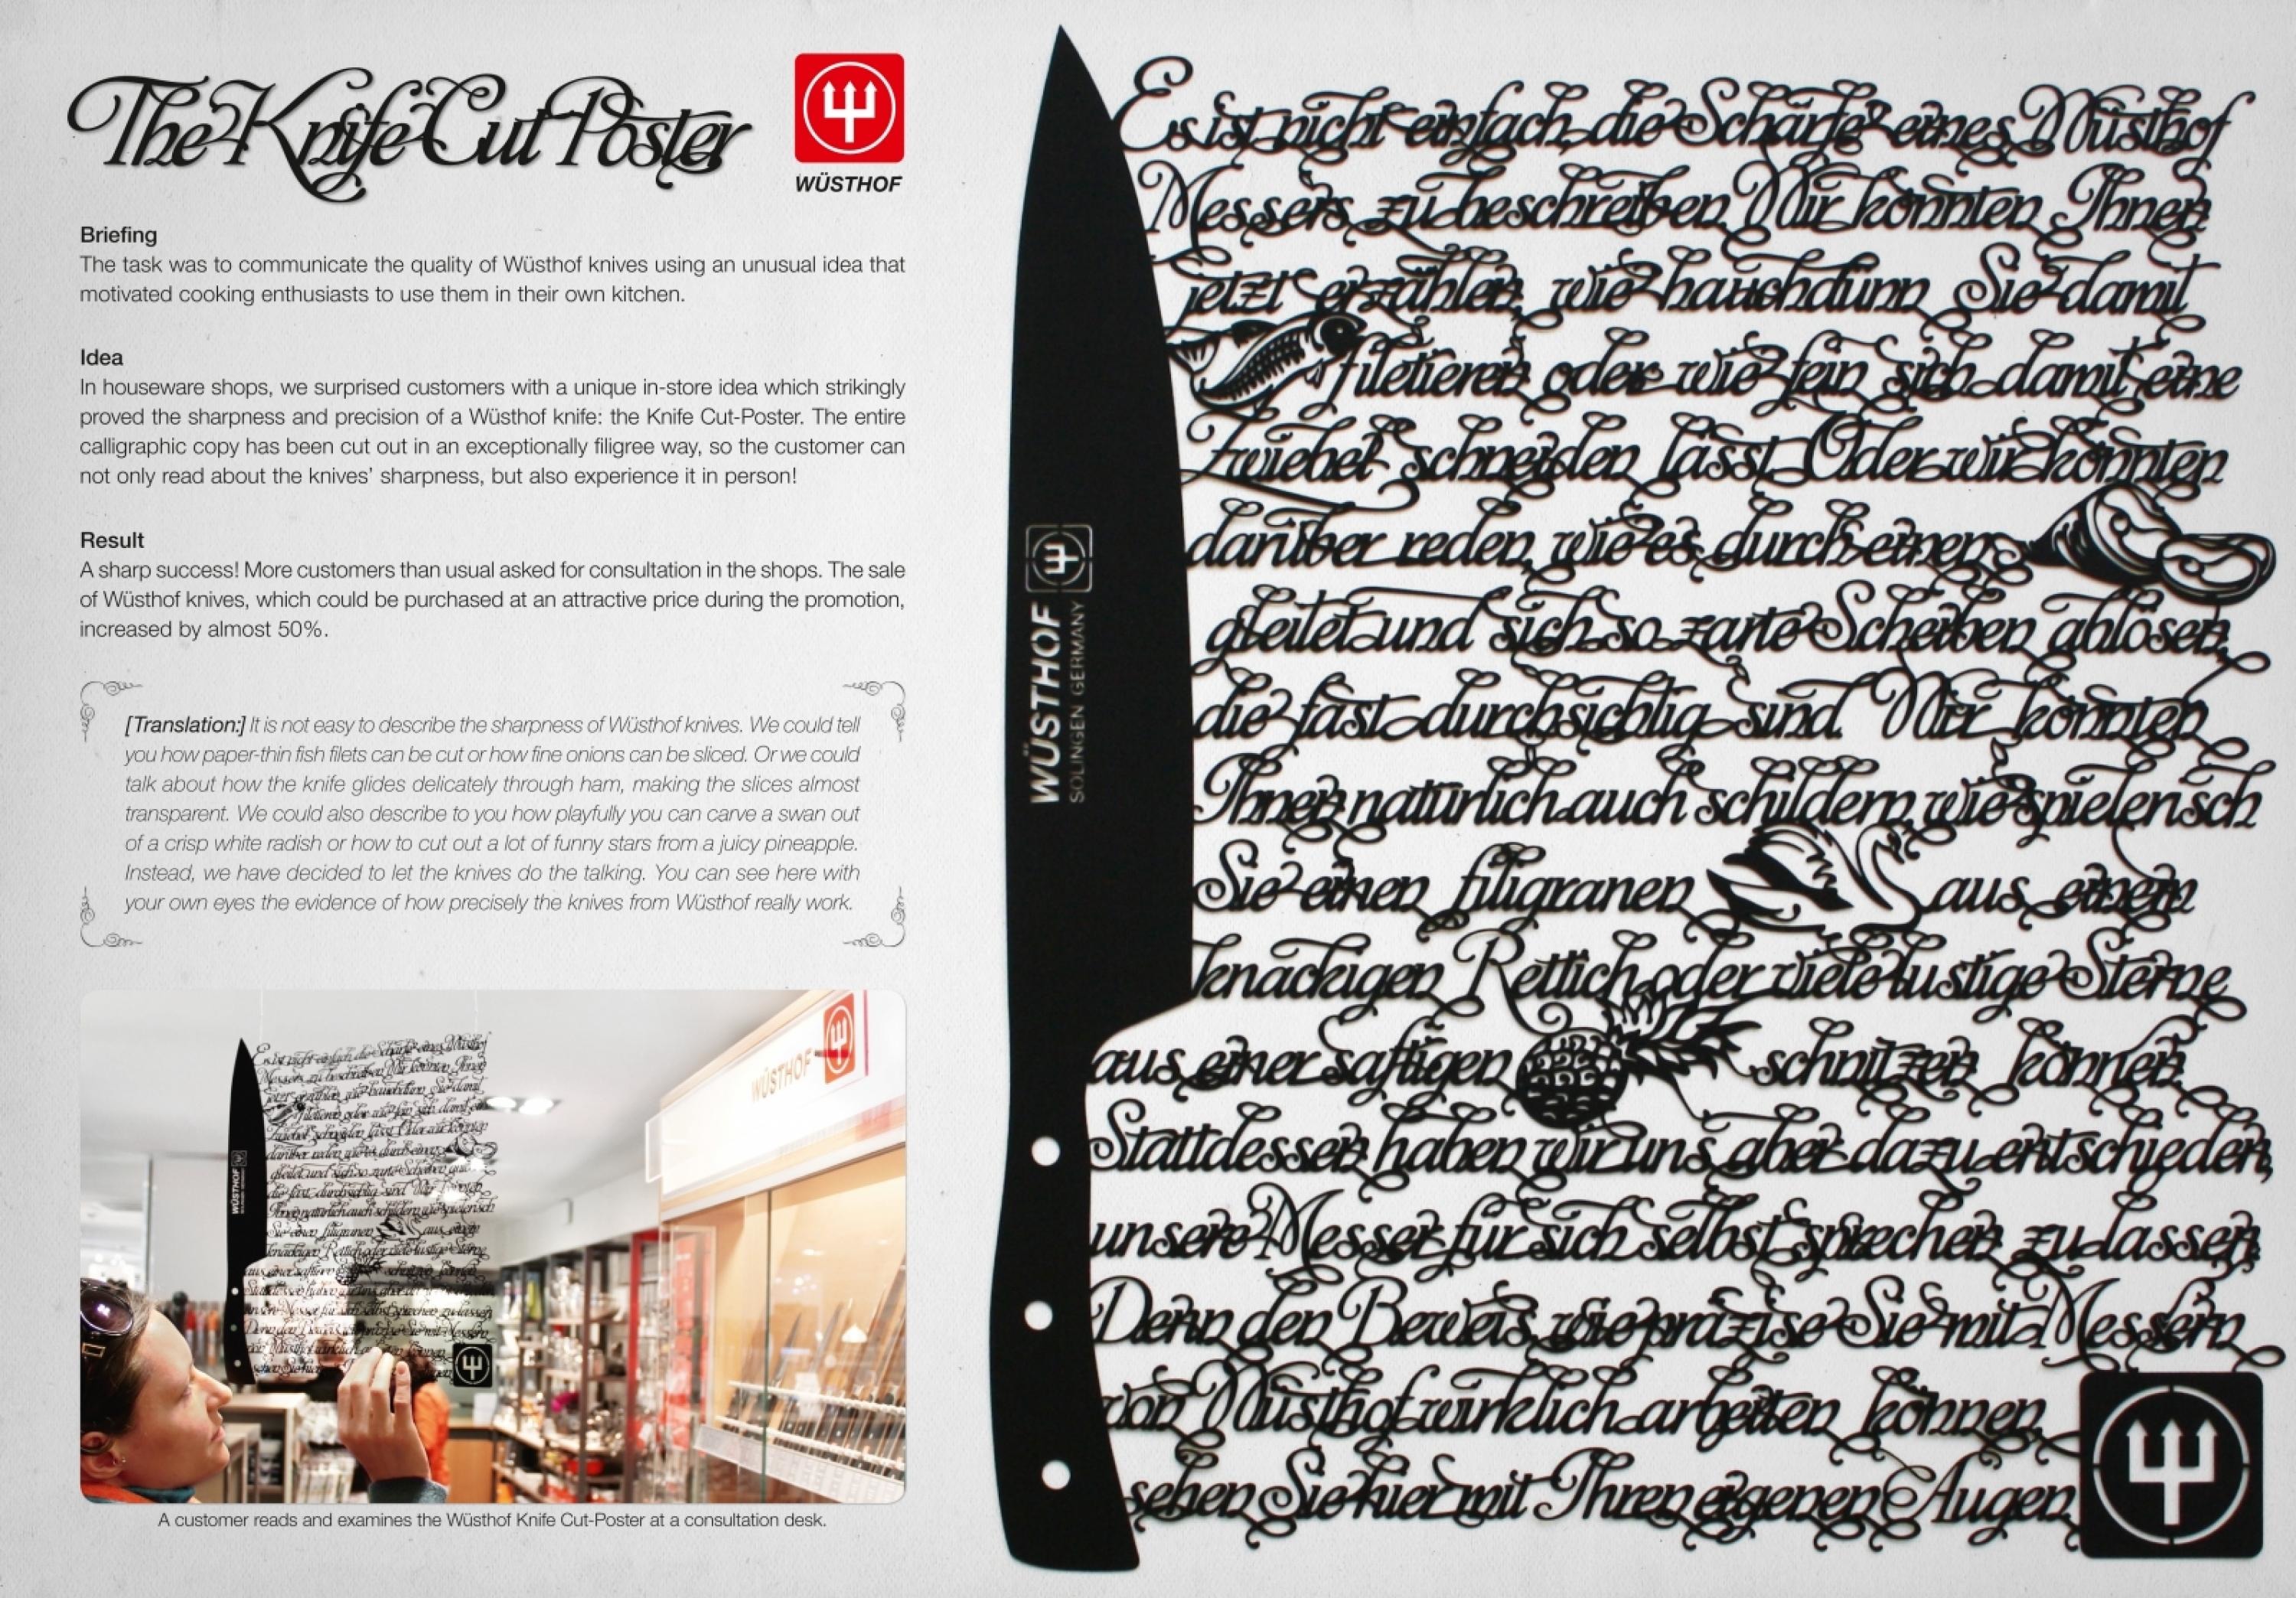 The Knife Cut Poster
WÜSTHOF
Briefing
The task was to communicate the quality of Wüsthof knives using an unusual idea that
motivated cooking enthusiasts to use them in their own kitchen.
Idea
In houseware shops, we surprised customers with a unique in-store idea which strikingly
proved the sharpness and precision of a Wüsthof knife: the Knife Cut-Poster. The entire
calligraphic copy has been cut out in an exceptionally filigree way, so the customer can
not only read about the knives’ sharpness, but also experience it in person!
Result
A sharp success! More customers than usual asked for consultation in the shops. The sale
of Wüsthof knives, which could be purchased at an attractive price during the promotion,
increased by almost 50%.
[Translation:] It is not easy to describe the sharpness of Wüsthof knives. We could tell
you how paper-thin fish filets can be cut or how fine onions can be sliced. Or we could
talk about how the knife glides delicately through ham, making the slices almost
transparent. We could also describe to you how playfully you can carve a swan out
of a crisp white radish or how to cut out a lot of funny stars from a juicy pineapple.
Instead, we have decided to let the knives do the talking. You can see here with
your own eyes the evidence of how precisely the knives from Wüsthof really work.
WÜSTHOF
A customer reads and examines the Wüsthof Knife Cut-Poster at a consultation desk.
WÜSTHOF
SOLINGEN GERMANY
Es ist nicht einfach, die Schärfe eines Wüsthof
Messers zu beschreiben. Wir könnten Ihnen
jetzt erzählen, wie hauchdünn Sie damit
filetieren oder wie fein sich damit eine
Zwiebel schneiden lässt. Oder wir könnten
darüber reden, wie es durch einen
gleitet und sich so zarte Scheiben ablösen,
die fast durchsichtig sind. Wir könnten
Ihnen natürlich auch schildern, wie spielerisch
Sie einen filigranen aus einem
knackigen Rettich oder viele lustige Sterne
aus einer saftigen schnitzen können.
Stattdessen haben wir uns aber dazu entschieden,
unsere Messer für sich selbst sprechen zu lassen.
Denn den Beweis, wie präzise Sie mit Messern
von Wüsthof wirklich arbeiten können,
sehen Sie hier mit Ihren eigenen Augen.